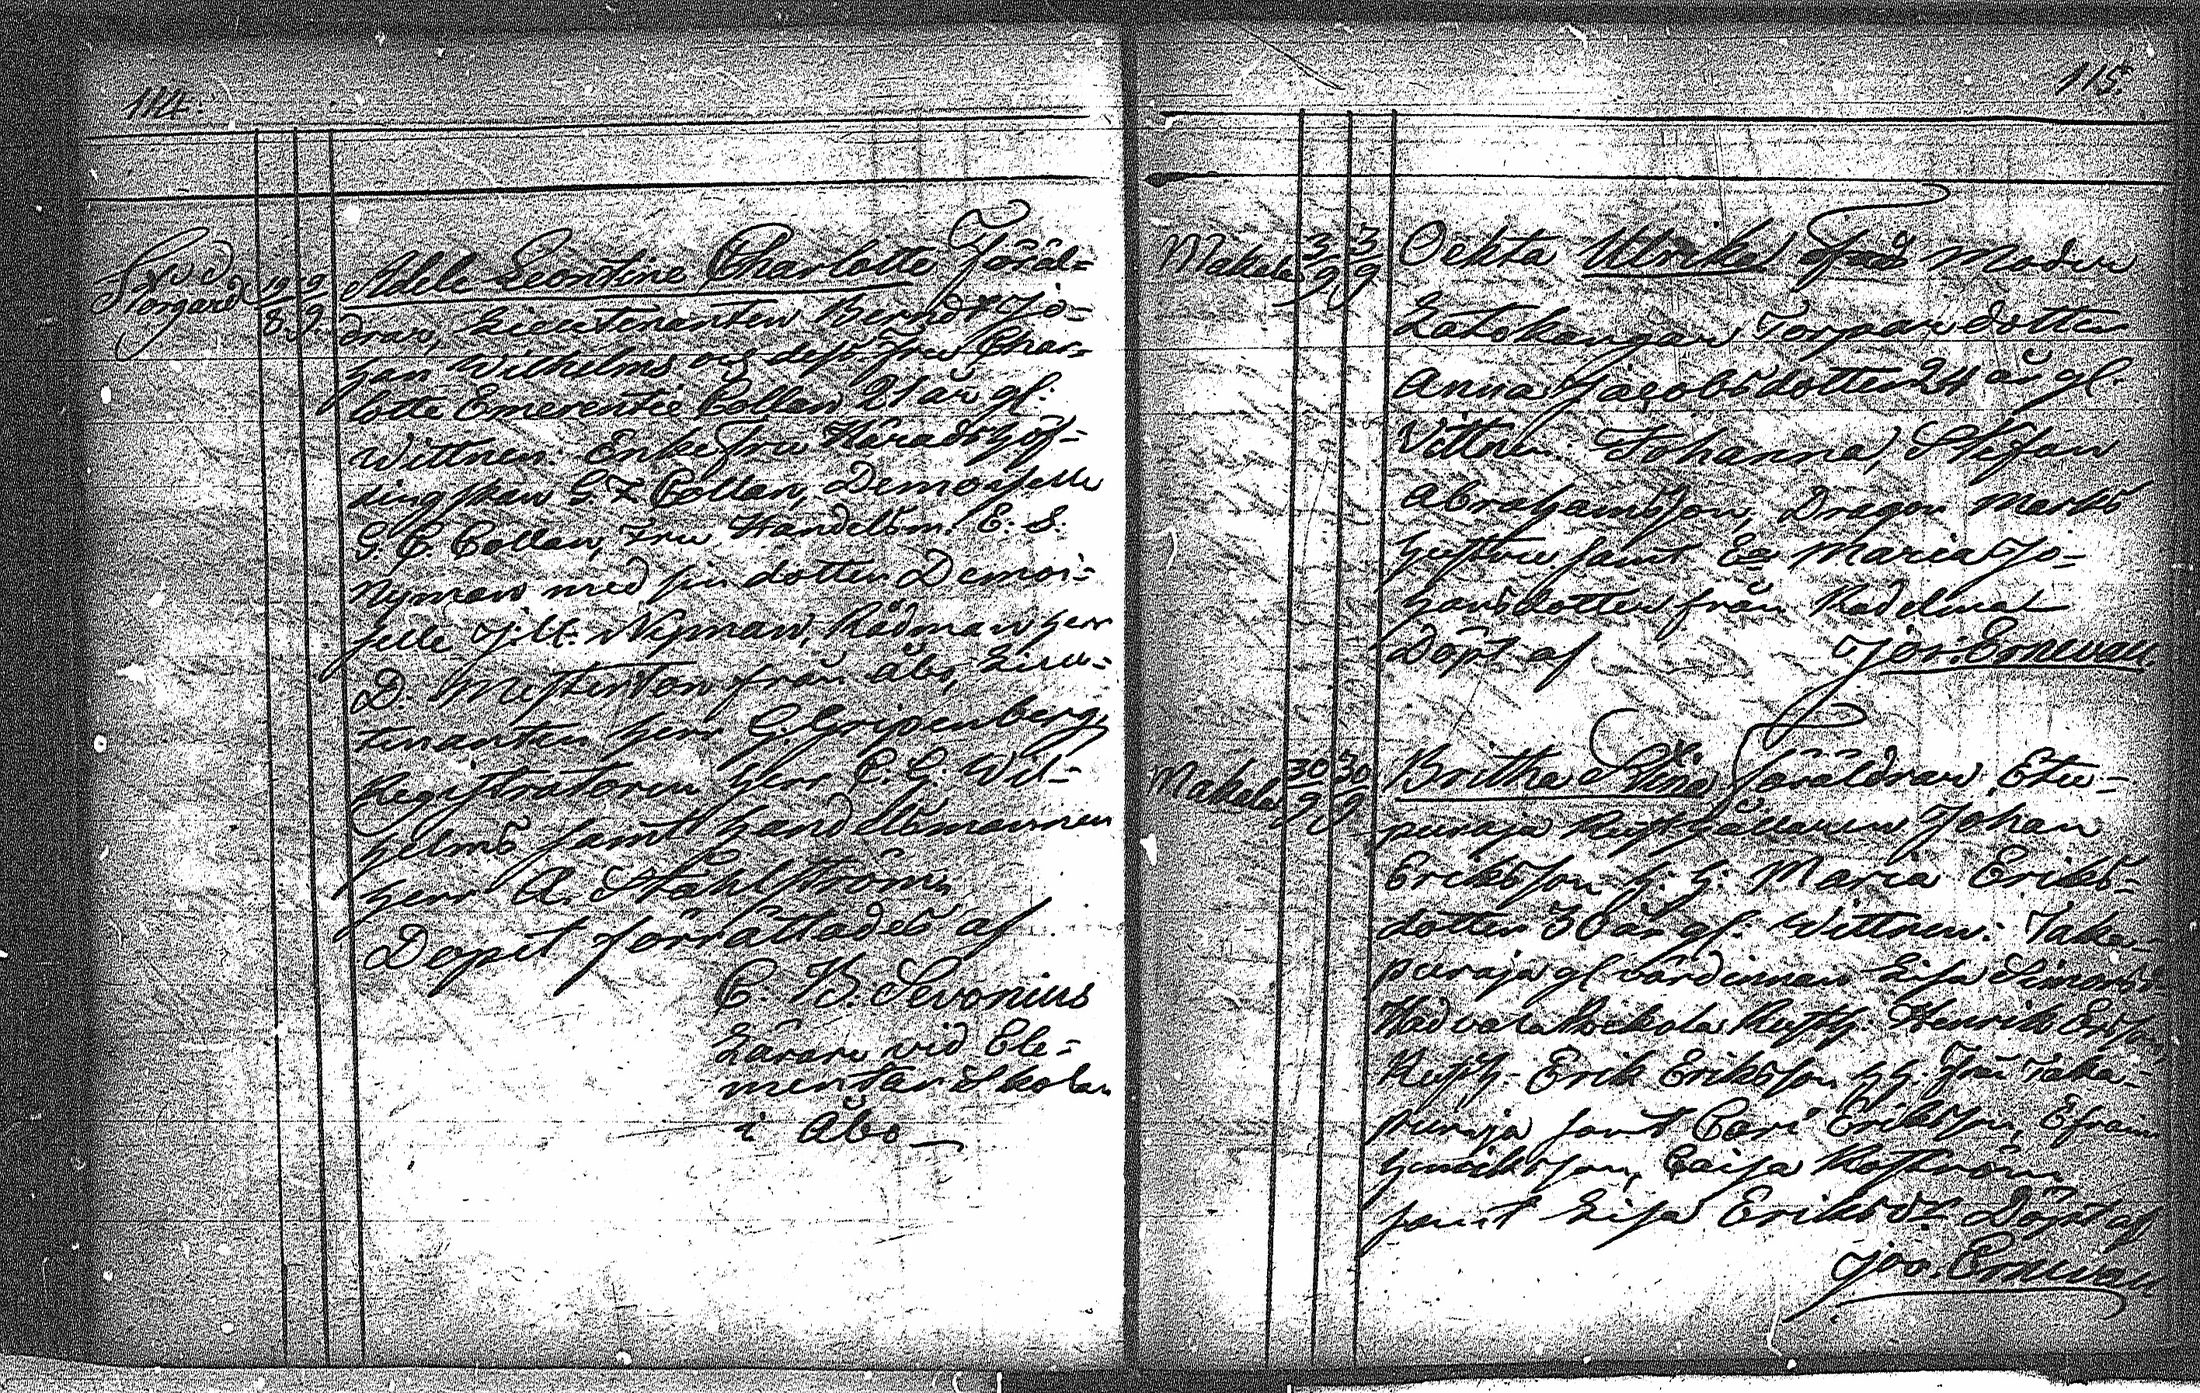 114.
Storgård
19 9
8. 9.
Adele Leontine Charlotte Föräl-
drar, Lieutenanten Berndt Jo-
han Wilhelms och dess Fru Char-
lotte Emerentie Collan 21 år gl.
Wittnen. Enkefru Häradshöf-
dingskan Collan, Demoiselle
G. C. Collan, Fru Handelsm. E. S.
Nyman med sin dotter Demoi-
selle Nyman, Rådman herr
D: Mesterton från Åbo, Lieu-
tenanten herr G. Gripenberg,
Registratoren Herr C. G. Wil-
helms samt handelsmannen
herr A. Ståhlström,
Dopet förrättades af
C. B. Sevonius
Lärare vid Ele-
mentar Skolan
i Åbo
115.
Makela
3 3
9 9
Oekta Ulrika Moder
Latokangas Torpare dotter
Anna Jacobsdotter 24 år gl.
Vittnen Johanna, Stefan
Abrahamsson, Dragon Marks
hustru samt Maria Jo-
hansdotter från
Döpt af Jos: Ernwall.
Makela
30 30
9 9
Britha Stina föräldrar Etu-
puraja Rusthållaren Johan
Eriksson h: h: Maria Eriks-
dotter 30 år gl: Wittnen: Taka-
puraja gl värdinnan Lisa Simonsd
Rusth. Henrik Ersson,
Rusth. Erik Eriksson h h. från Taka-
puraja samt Carl Eriksson, Efraim
Henriksson, Caisa
samt Lisa Eriksdr Döpt af
Jos. Ernwall